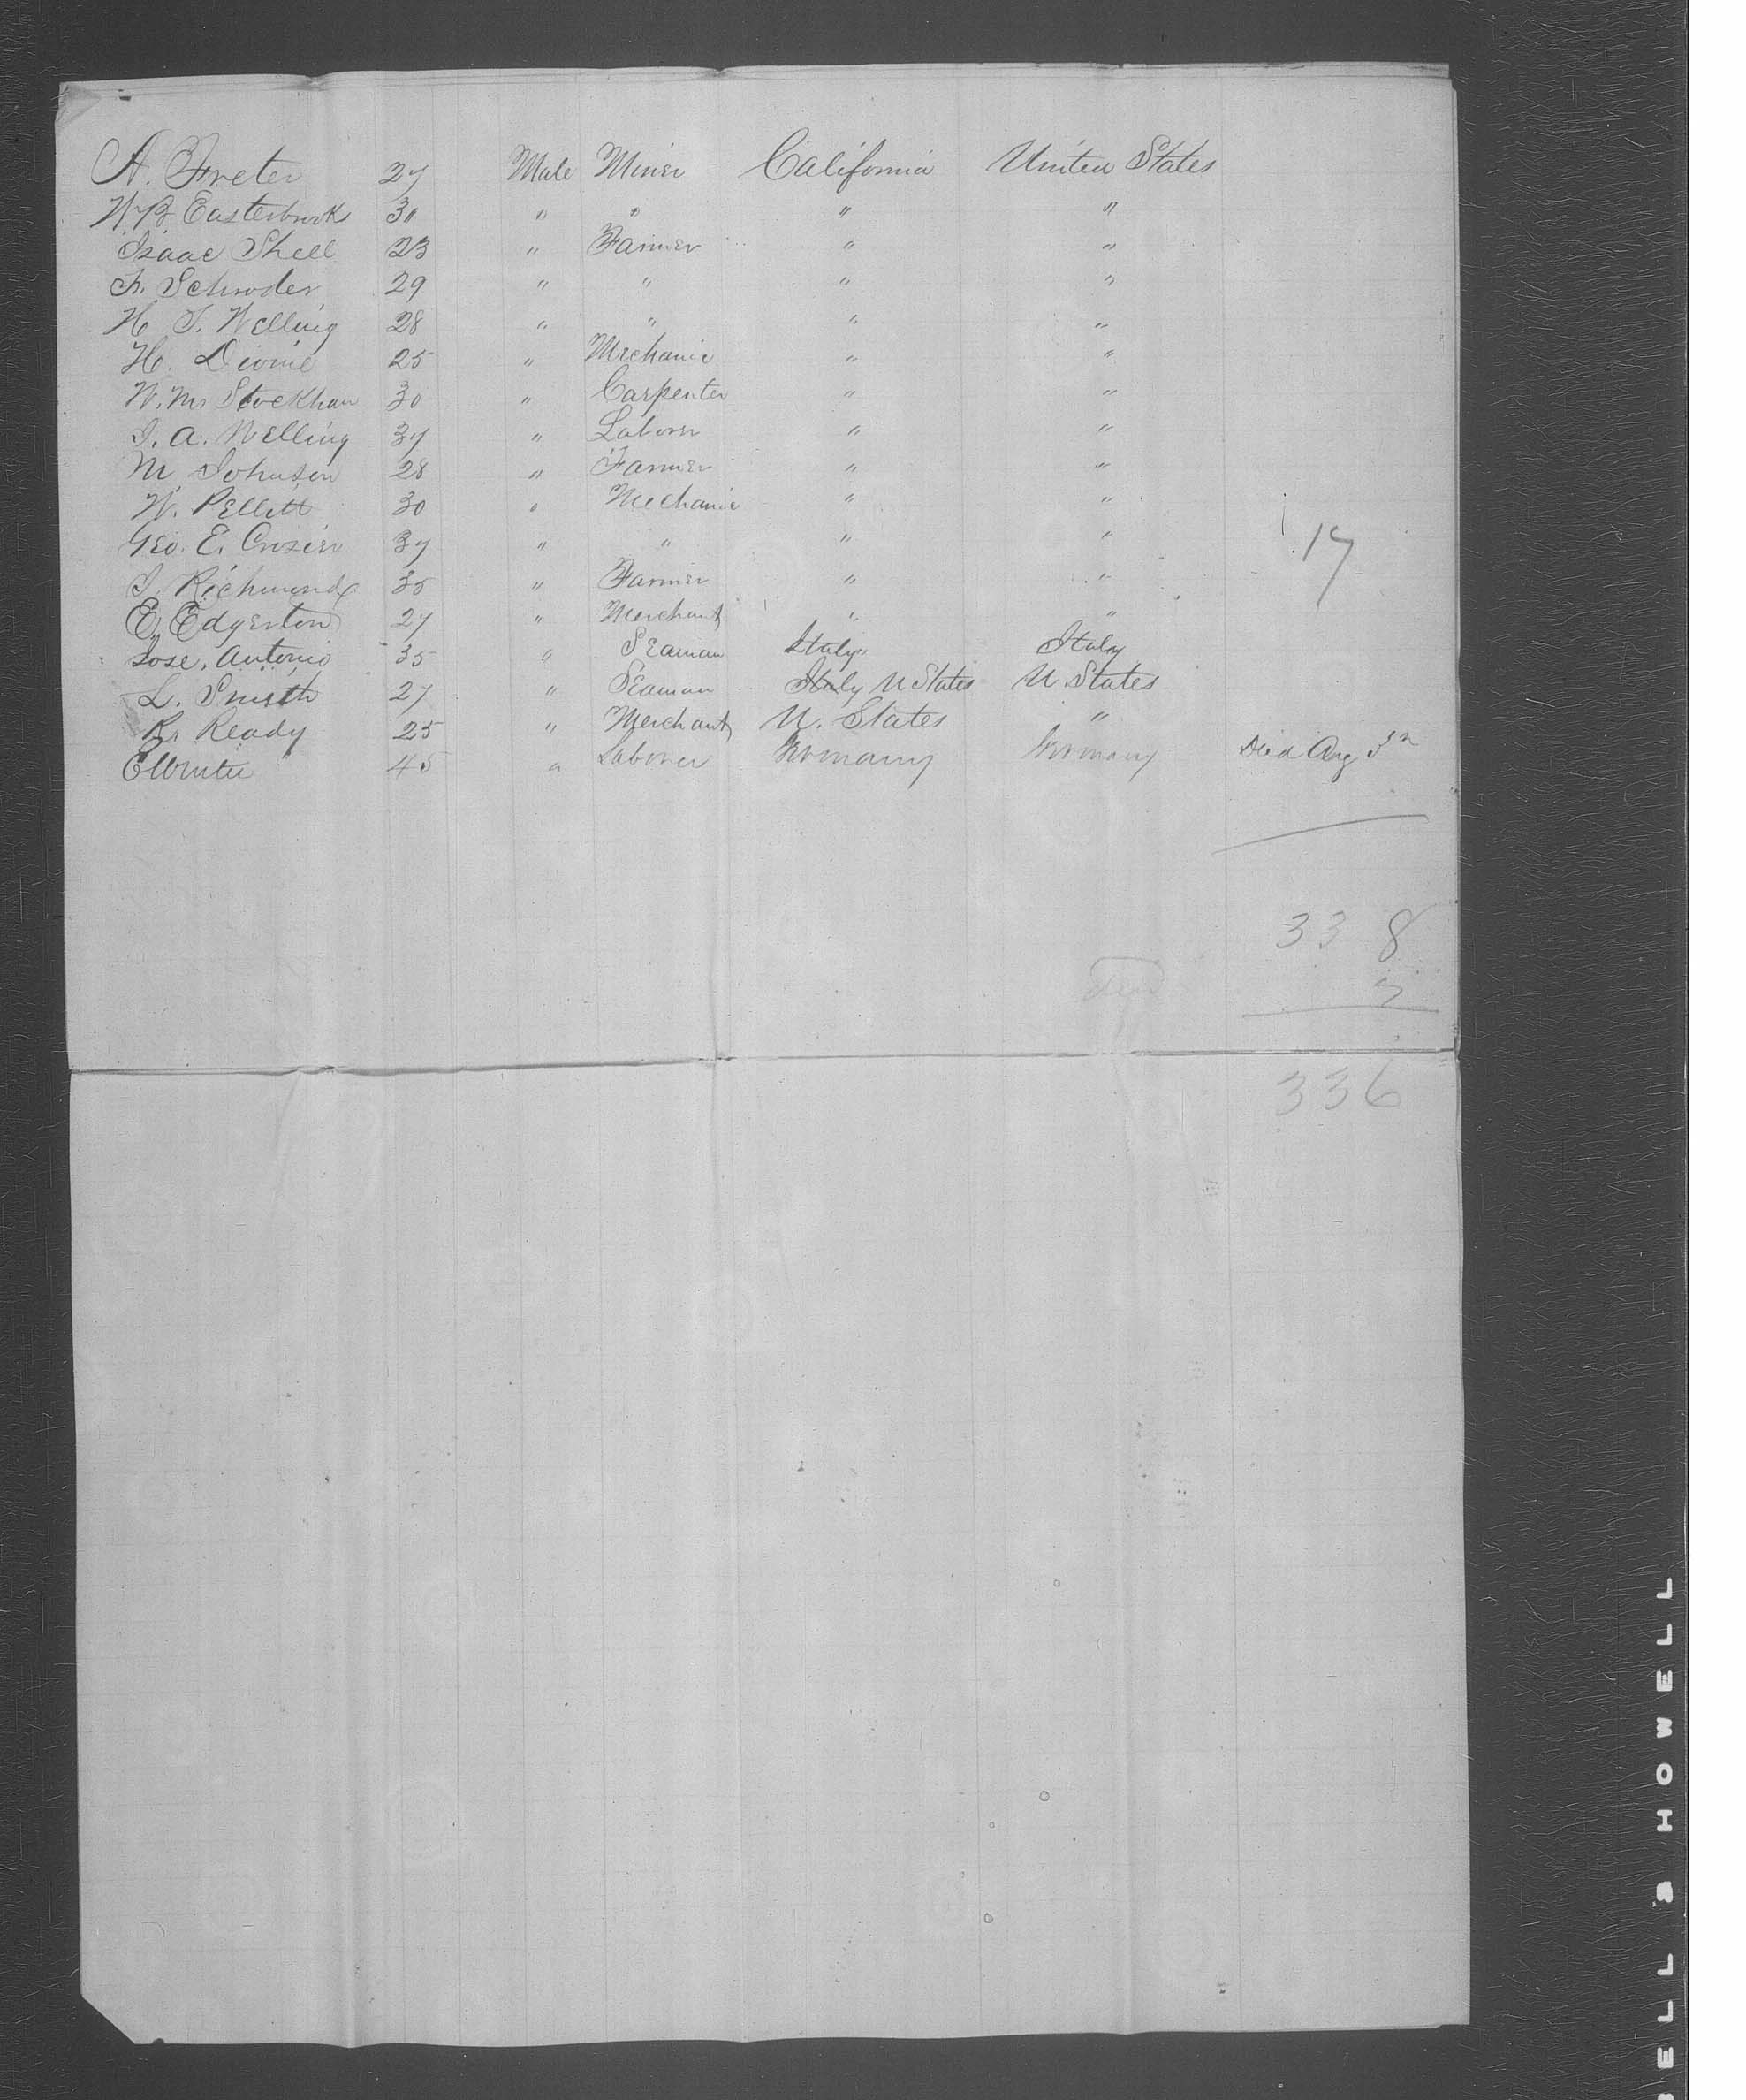 A. Freter 27 Male Miner California United States
W. B. Easterbrook 30 " " " "
Isaac Shell 23 " Farmer " "
A. Schroder 29 " " " "
H. T. Welling 28 " " " "
H. Divine 25 " Mechanic " "
W. M. Stockham 30 " Carpenter " "
J. A. Welling 37 " Laborer " "
M Johnson 28 " Farmer " "
W. Pellett 30 " Mechanic " "
Geo. E. Crosier 37 " " " "
17
J. Richmond 35 " Farmer " "
E. Edgerton 27 " Merchant " "
Jose. Antonio 35 " Seaman Italy Italy
L. Smith 27 " Seaman Italy U States U. States
R. Ready 25 " Merchant U. States "
E Winter 45 " Laborer Germany Germany Died Aug
33 8
2
336
BELL & HOWELL